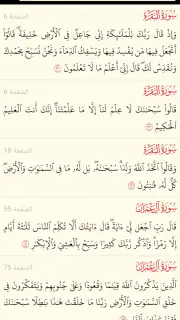 الصفحة 6
سُورَةُ البَقَرَةِ
وَإِذْ قَالَ رَبُّكَ لِلْمَلَٰٓئِكَةِ إِنِّى جَاعِلٌ فِى ٱلْأَرْضِ خَلِيفَةً ۖ قَالُوٓا۟
أَتَجْعَلُ فِيهَا مَن يُفْسِدُ فِيهَا وَيَسْفِكُ ٱلدِّمَآءَ وَنَحْنُ نُسَبِّحُ بِحَمْدِكَ
وَنُقَدِّسُ لَكَ ۖ قَالَ إِنِّىٓ أَعْلَمُ مَا لَا تَعْلَمُونَ
الصفحة 6
سُورَةُ البَقَرَةِ
قَالُوا۟ سُبْحَٰنَكَ لَا عِلْمَ لَنَآ إِلَّا مَا عَلَّمْتَنَآ ۖ إِنَّكَ أَنتَ ٱلْعَلِيمُ
ٱلْحَكِيمُ
الصفحة 18
سُورَةُ البَقَرَةِ
وَقَالُوا۟ ٱتَّخَذَ ٱللَّهُ وَلَدًا ۗ سُبْحَٰنَهُۥ ۖ بَل لَّهُۥ مَا فِى ٱلسَّمَٰوَٰتِ وَٱلْأَرْضِ ۖ
كُلٌّ لَّهُۥ قَٰنِتُونَ
الصفحة 55
سُورَةُ آلِ عِمْرَانَ
قَالَ رَبِّ ٱجْعَل لِّىٓ ءَايَةً ۖ قَالَ ءَايَتُكَ أَلَّا تُكَلِّمَ ٱلنَّاسَ ثَلَٰثَةَ أَيَّامٍ
إِلَّا رَمْزًا ۗ وَٱذْكُر رَّبَّكَ كَثِيرًا وَسَبِّحْ بِٱلْعَشِىِّ وَٱلْإِبْكَٰرِ
الصفحة 75
سُورَةُ آلِ عِمْرَانَ
ٱلَّذِينَ يَذْكُرُونَ ٱللَّهَ قِيَٰمًا وَقُعُودًا وَعَلَىٰ جُنُوبِهِمْ وَيَتَفَكَّرُونَ فِى
خَلْقِ ٱلسَّمَٰوَٰتِ وَٱلْأَرْضِ رَبَّنَا مَا خَلَقْتَ هَٰذَا بَٰطِلًا سُبْحَٰنَكَ
فَقِنَا عَذَابَ ٱلنَّارِ